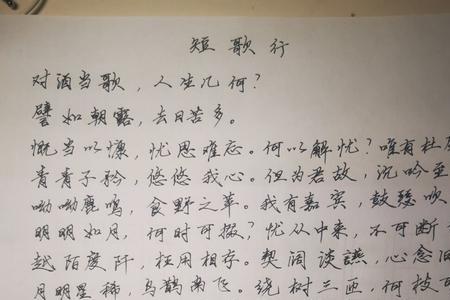 短歌行
对酒当歌，人生几何？
譬如朝露，去日苦多。
慨当以慷，忧思难忘。何以解忧？唯有杜康
青青子衿，悠悠我心。但为君故，沉吟至
呦呦鹿鸣，食野之苹。我有嘉宾，鼓瑟吹
明明如月，何时可掇？忧从中来，不可断
越陌度阡，枉用相存。契阔谈讌，心念旧
月明星稀，乌鹊南飞。绕树三匝，何枝可